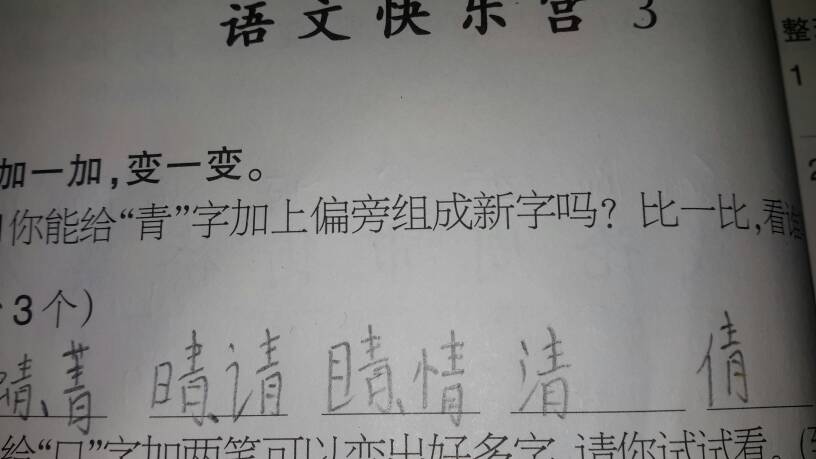 语文快乐宫 3
整
1
加一加，变一变。
2
你能给“青”字加上偏旁组成新字吗？比一比，看谁
3个）
睛、菁 晴、请 睛、情 清 倩
给“口”字加两笔可以变出好多字，请你试试看。（